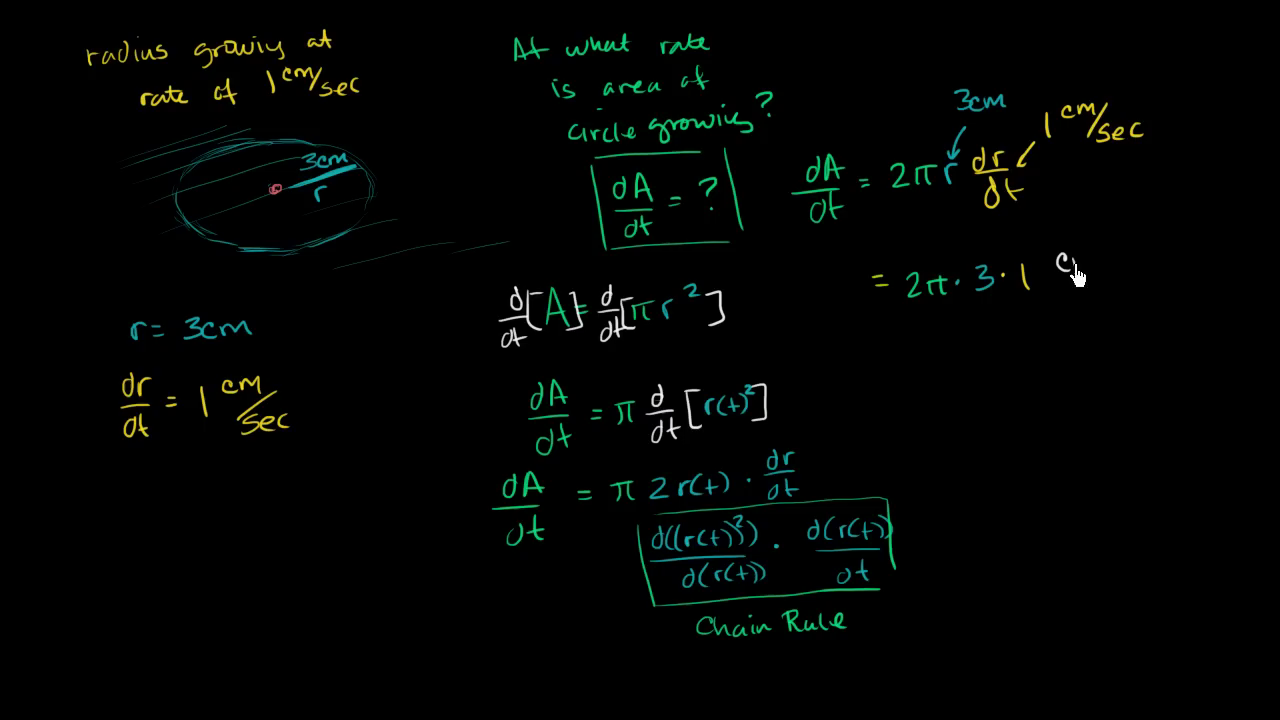 radius growing at
rate of 1 cm/sec
3cm
r
r = 3cm
dr/dt = 1 cm/sec
At what rate
is area of
circle growing?
dA/dt = ?
d/dt[A] = d/dt[πr²]
dA/dt = π d/dt[r(t)²]
dA/dt = π 2r(t) · dr/dt
d((r(t)²)/d(r(t)) · d(r(t))/dt
Chain Rule
3cm
1 cm/sec
dA/dt = 2πr dr/dt
= 2π · 3 · 1 c